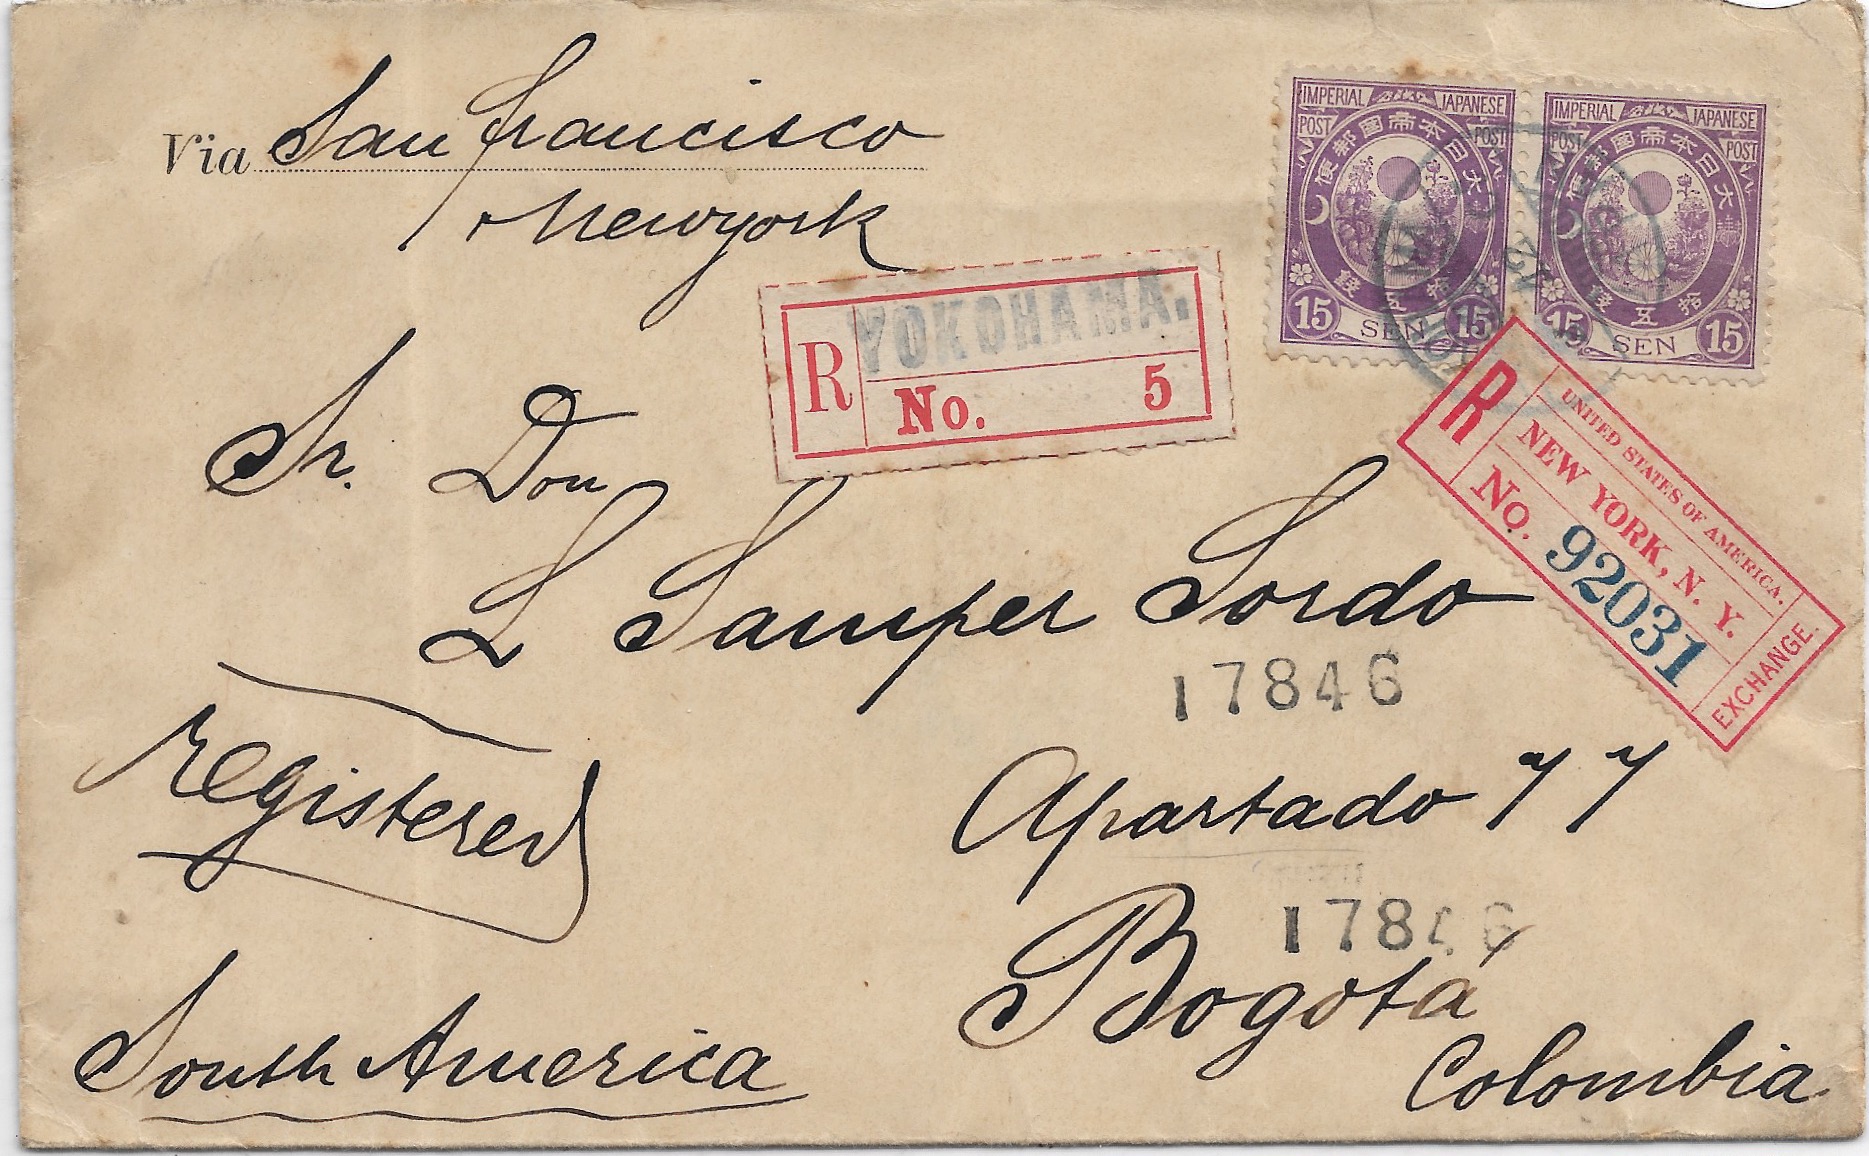 Via San Francisco
Newyork
IMPERIAL JAPANESE
POST POST
大日本帝國郵便
拾五錢
15 SEN 15
IMPERIAL JAPANESE
POST POST
大日本帝國郵便
拾五錢
15 SEN 15
R YOKOHAMA.
No. 5
R UNITED STATES OF AMERICA.
NEW YORK, N. Y.
No. 92031
EXCHANGE.
Sr. Don
S Samper Sordo
17846
registered
Apartado 77
17846
Bogotá
South America
Colombia